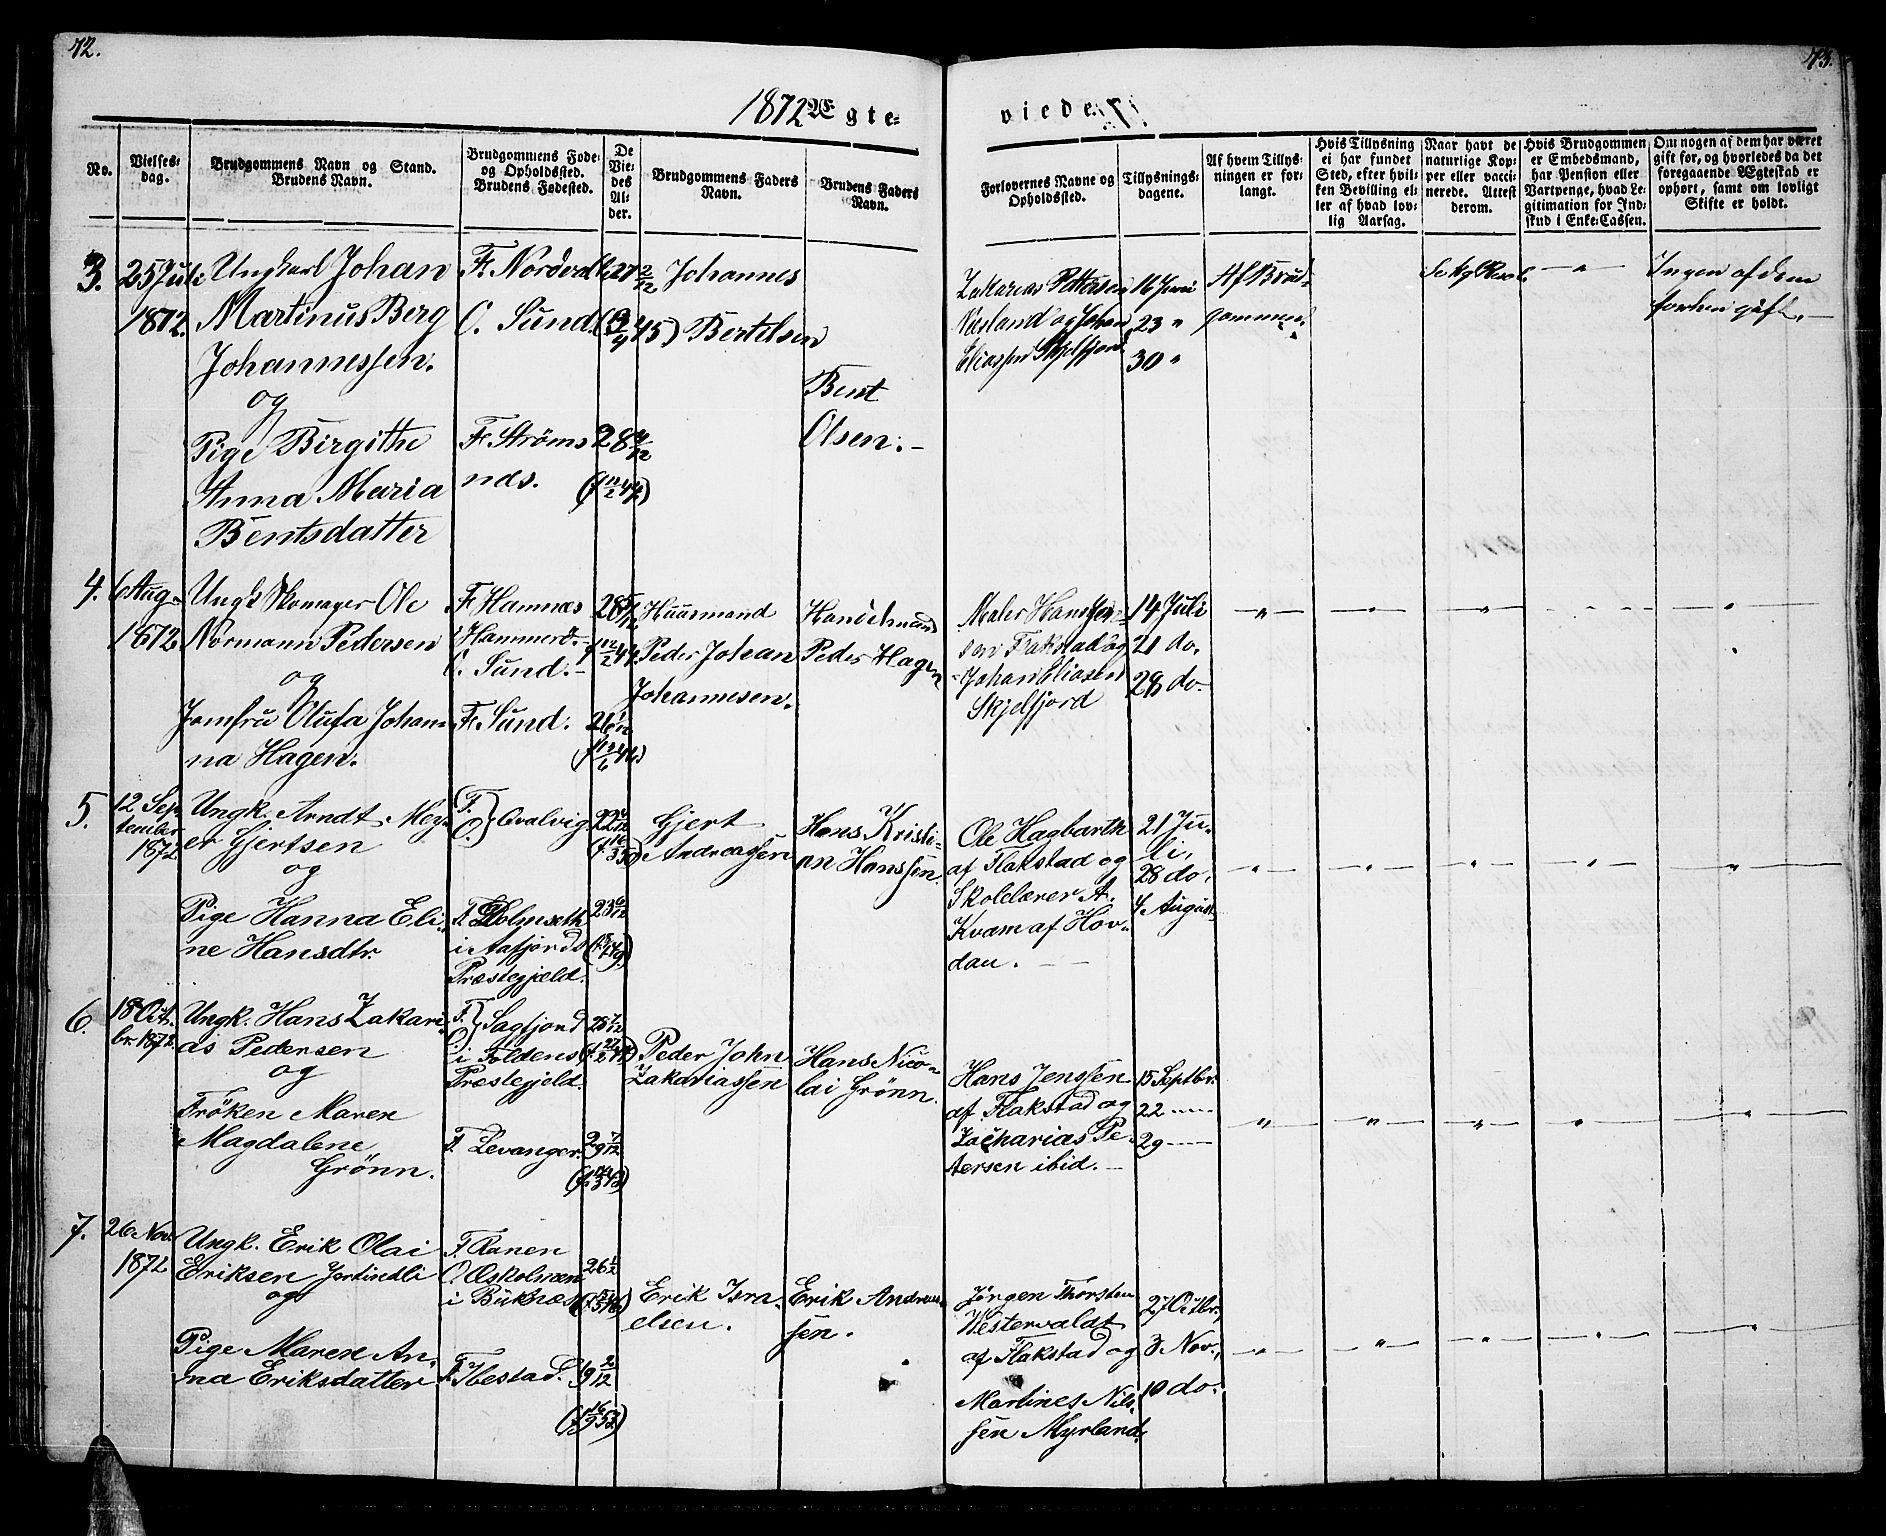 72.
73.
1872 Ægte-
viede.
No.
Vielses-
dag.
Brudgommens Navn og Stand.
Brudens Navn.
Brudgommens Føde-
og Opholdssted.
Brudens Fødested.
De
Vie-
des
Al-
der.
Brudgommens Faders
Navn.
Brudens Faders
Navn.
Forlovernes Navne og
Opholdssted.
Tillysnings-
dagene.
Af hvem Tillys-
ningen er for-
langt.
Hvis Tillysning
ei har fundet
Sted, efter hvil-
ken Bevilling el-
ler af hvad lov-
lig Aarsag.
Naar havt de
naturlige Kop-
per eller vacci-
nerede. Attest
derom.
Hvis Brudgommen
er Embedsmand,
har Pension eller
Vartpenge, hvad Le-
gitimation for Ind-
skud i Enke-Cassen.
Om nogen af dem har været
gift før, og hvorledes da det
foregaaende Ægteskab er
ophørt, samt om lovligt
Skifte er holdt.
3.
25 Juli
1872.
Ungkarl Johan
Martinus Berg
Johannessen.
og
Pige Birgithe
Anna Maria
Bentsdatter
F. Nordval
O. Sund
F. Ströms
nds.
27 2/12
28
Johannes
Bertelsen
Bent
Olsen.-
Zakarias Pettersen
og Johan
Eliassen Skjelfjord
16 Juni
23 "
30 "
Af Brud-
gommen
Ingen af dem
forhen gift.-
4.
6 Aug.
1872
Ungk. Skomager Ole
Normann Pedersen
og
Jomfru Olufa Johan-
na Hagen.
F. Hamnæs
i Hammerø.-
O. Sund.-
F. Sund.
28
26 1/12
Huusmand
Peder Johan
Johannesen.
Handelsmand
Peder Hagen
Maler Hans Jen-
sen Flakstad og
Johan Eliasen
Skjelfjord
14 Juli
21 do.
28 do.
5.
12 Sep-
tember
1872
Ungk. Arndt Mey-
er Gjertsen
og
Pige Hanna Eli-
ne Hansdtr.
F.
O. } Qvalvig
F. Holmseth
i Aafjords
Præstegjeld.
22
23
Gjert
Andreassen
Hans Kristi-
an Hanssen.
Ole Hagbarth
af Flakstad og
Skolelærer A.
Kvam af Hov-
dan.
21 Ju-
li,
28 do.
4 August
6.
18 Oct.
br. 1872.
Ungk. Hans Zakari-
as Pedersen
og
Frøken Maren
Magdalene
Grønn.
F.
O. } Sagfjord
i Foldens
Præstegjeld.
F. Levanger.
25 7/12
29 7/12
Peder John
Zakariassen
Hans Nico-
lai Grønn.
Hans Jenssen
af Flakstad og
Zacharias Pe-
tersen ibid.-
15 Septbr.
22
29
7.
26 Nov.
1872
Ungk. Erik Olai
Eriksen
og
Pige Maren An-
na Eriksdatter
F. Ranen
O.
i Buknæs
F. Ibestad.
26 1/2
19 2/12
Erik Isra-
elsen.
Erik Andreas-
sen.
Jørgen Thorsten
Westervaldt
af Flakstad og
Martines Nils-
sen Myrland.
27 Octbr.,
3 Nov.,
10 do.